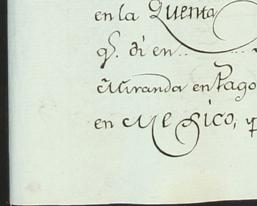 en la Quenta
q.ᵉ di en.. ... 
Miranda en Pago
en Mexico,